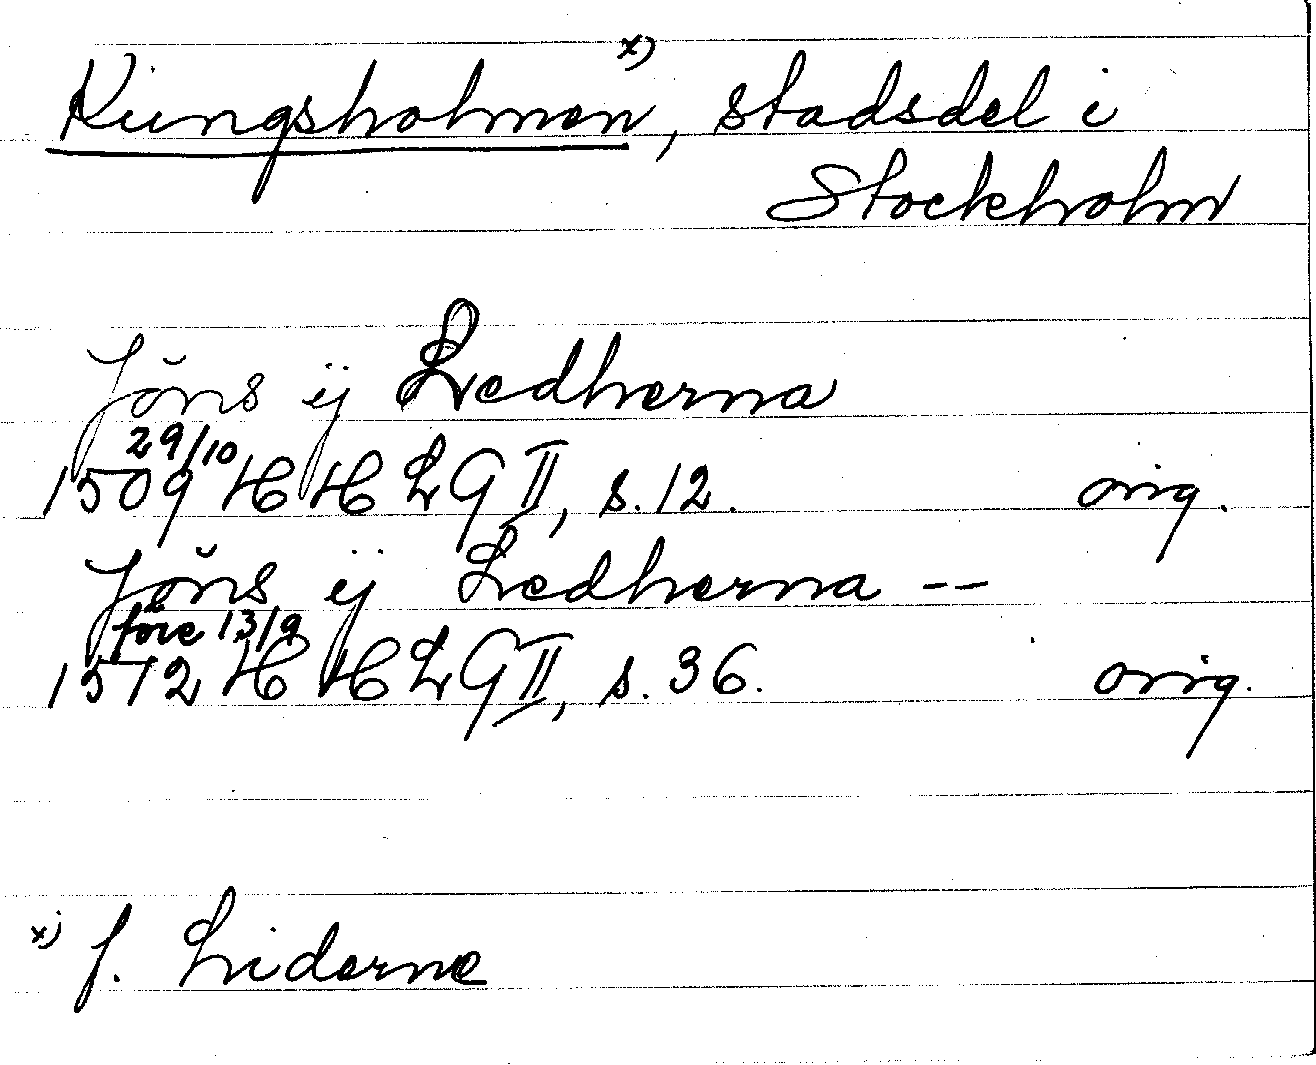 Kungsholmen x), stadsdel i
Stockholm
Jöns ij Ledherna
29/10
1509 HH LG II, s. 12. orig.
Jöns ij Ledherna --
före 13/9
1512 HH LG II, s. 36. orig.
x) f. Liderne